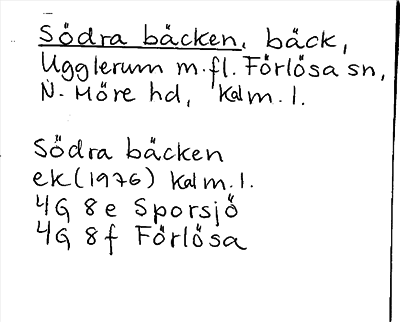 Södra bäcken, bäck,
Ugglerum m.fl. Förlösa sn,
N. Möre hd, Kalm. l.
Södra bäcken
ek (1976) Kalm. l.
4G 8e Sporsjö
4G 8f Förlösa